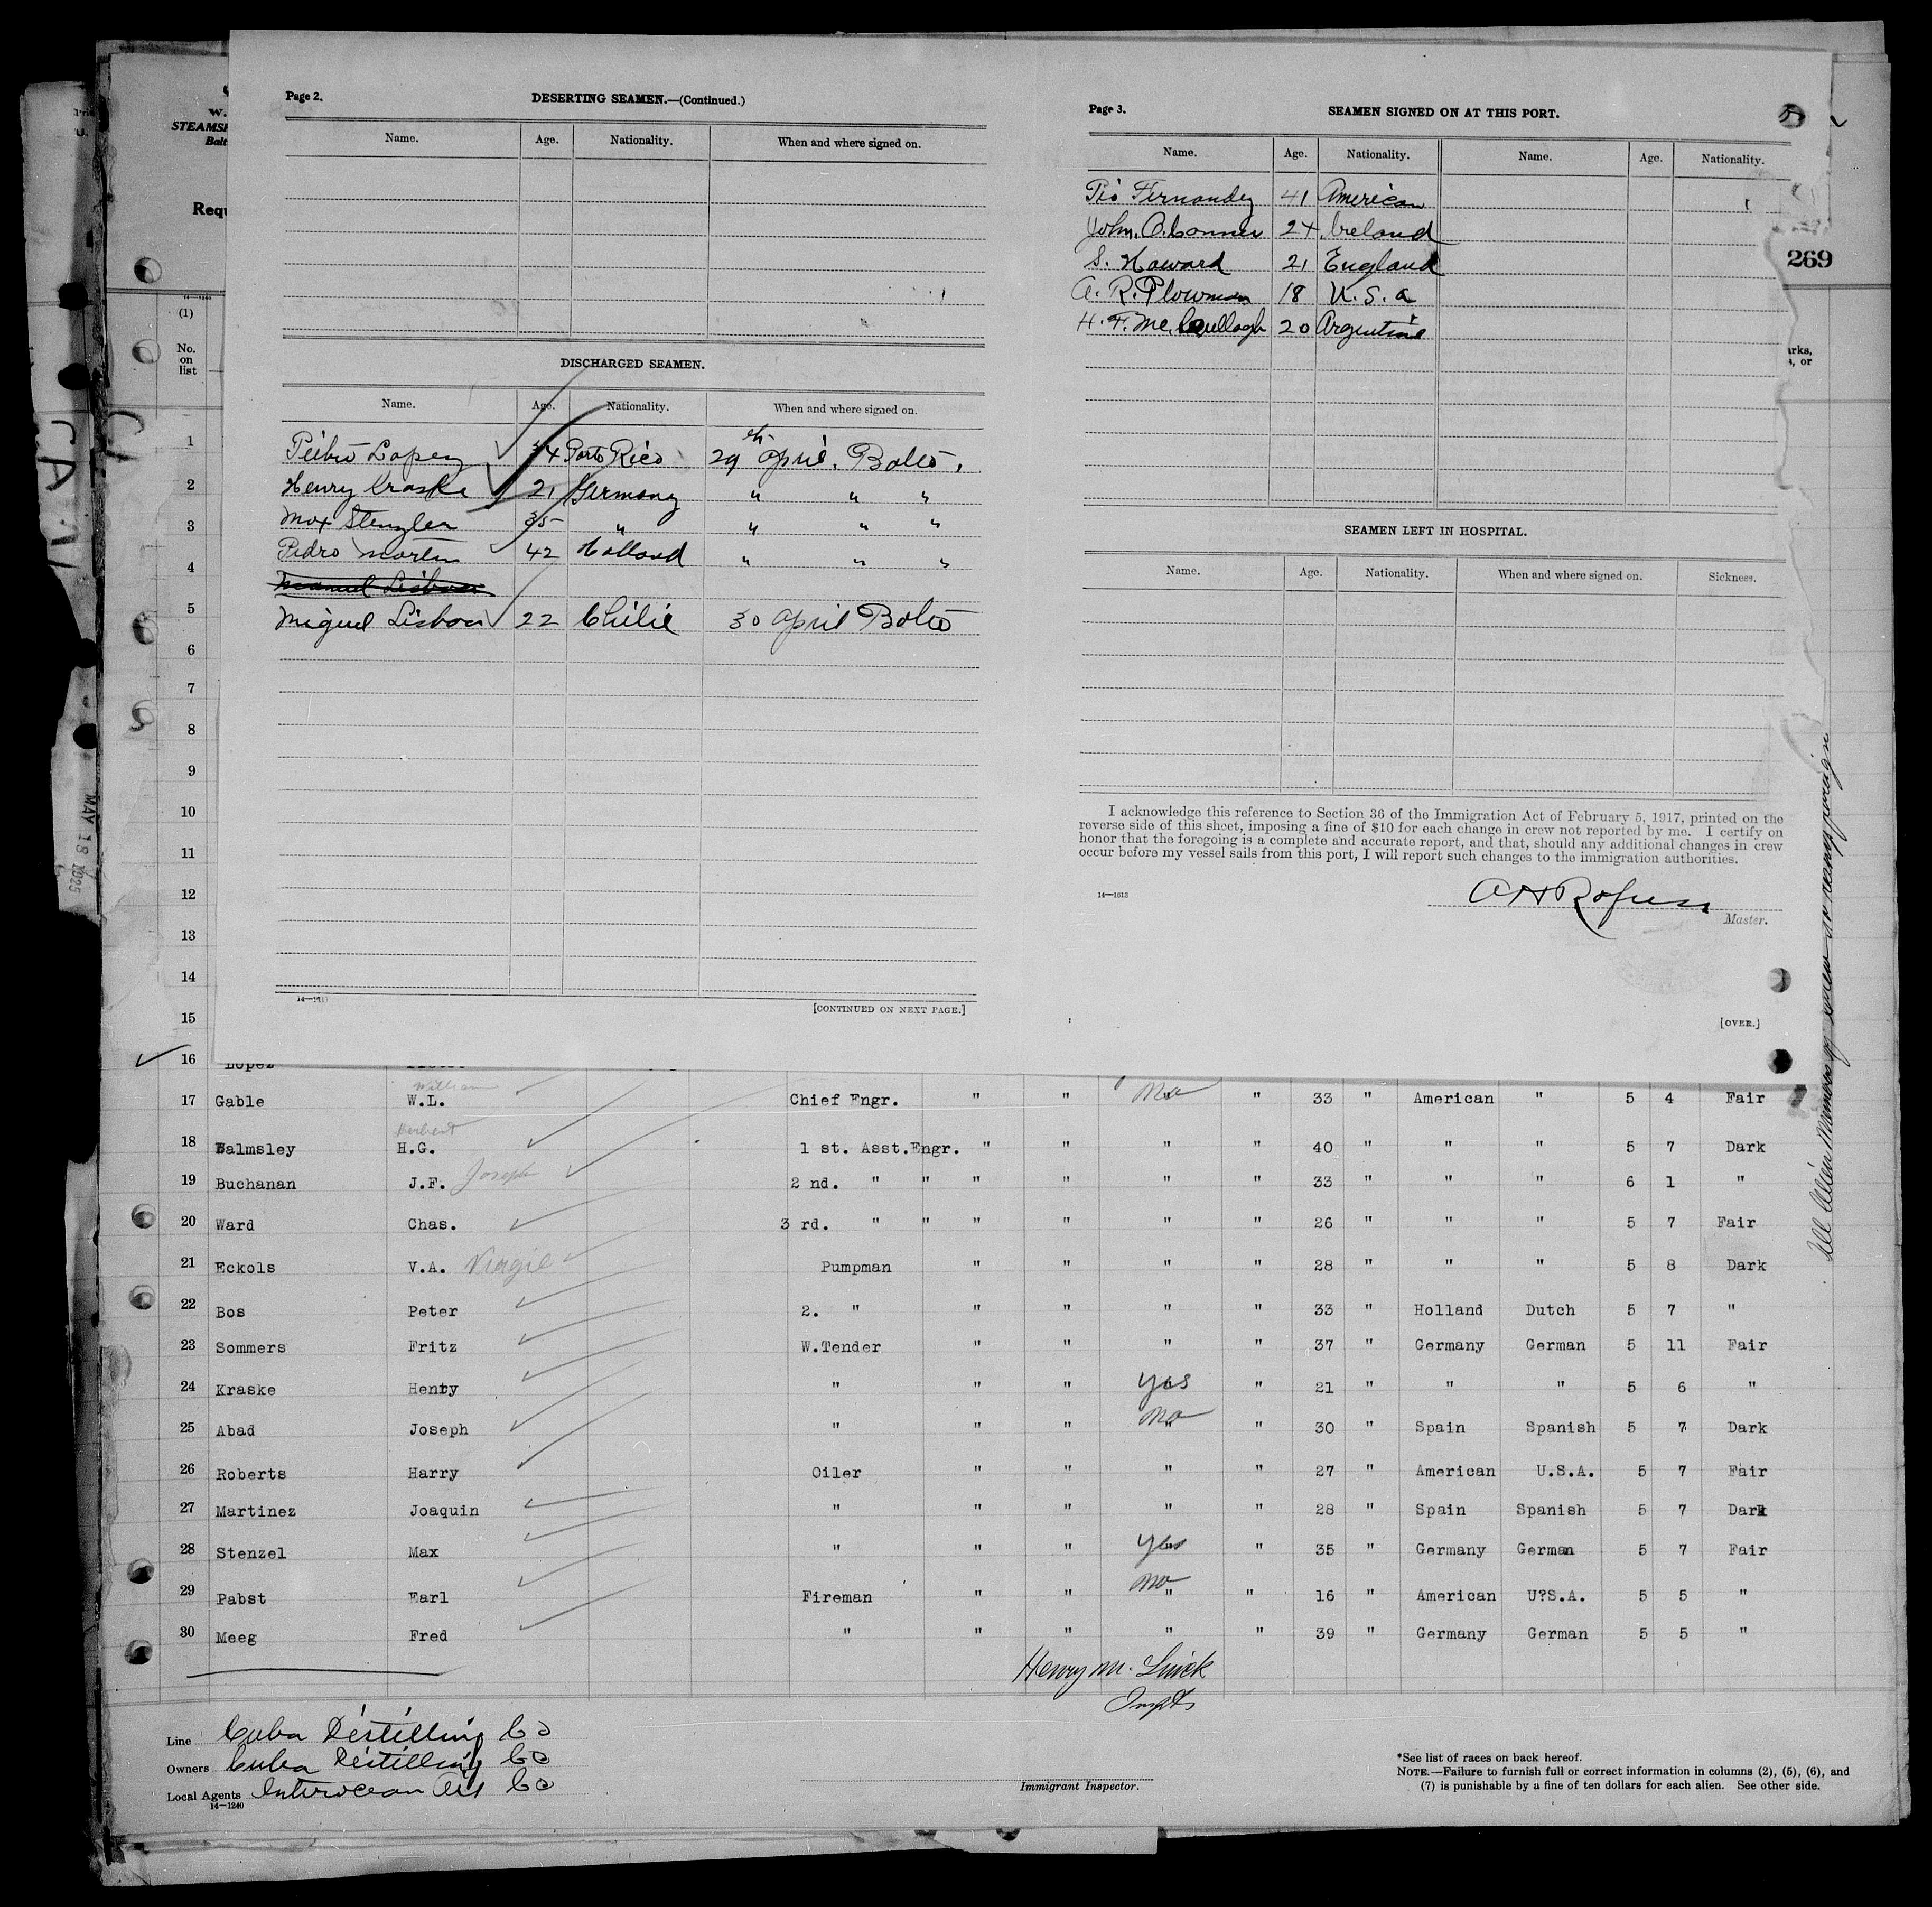 Page 2.
DESERTING SEAMEN.—(Continued.)
Name. Age. Nationality. When and where signed on.
DISCHARGED SEAMEN.
Name. Age. Nationality. When and where signed on.
Pedro Lopez 34 Porto Rico 29th April. Balto.
Henry Kraske 21 Germany " " "
Max Stenzler 35 " " " "
Pedro Martin 42 Holland " " "
Manuel Lisboa
Miguel Lisboa 22 Chilie 30 April Balto
14—1613
[CONTINUED ON NEXT PAGE.]
Page 3.
SEAMEN SIGNED ON AT THIS PORT.
Name. Age. Nationality. Name. Age. Nationality.
Pio Fernandez 41 American
John. O.Connor 24 Ireland
S. Howard 21 England
A. R. Plowman 18 U. S. a
H. F. Mc. Cullagh 20 Argentine
SEAMEN LEFT IN HOSPITAL.
Name. Age. Nationality. When and where signed on. Sickness.
I acknowledge this reference to Section 36 of the Immigration Act of February 5, 1917, printed on the
reverse side of this sheet, imposing a fine of $10 for each change in crew not reported by me. I certify on
honor that the foregoing is a complete and accurate report, and that, should any additional changes in crew
occur before my vessel sails from this port, I will report such changes to the immigration authorities.
14—1613
Master.
[OVER.]
STEAMS
Balt
Requ
(1)
No.
on
list
269
arks,
, or
MAY 18 1925
1
2
3
4
5
6
7
8
9
10
11
12
13
14
15
16 Lopez
William
17 Gable W.L. Chief Engr. " " No " 33 " American " 5 4 Fair
Herbert
18 Walmsley H.G. 1 st. Asst.Engr. " " " " 40 " " " 5 7 Dark
19 Buchanan J.F. Joseph 2 nd. " " " " " " 33 " " " 6 1 "
20 Ward Chas. 3 rd. " " " " " " 26 " " " 5 7 Fair
21 Eckols V.A. Virgil Pumpman " " " " 28 " " " 5 8 Dark
22 Bos Peter 2. " " " " " 33 " Holland Dutch 5 7 "
23 Sommers Fritz W.Tender " " " " 37 " Germany German 5 11 Fair
24 Kraske Henry " " " yes " 21 " " " 5 6 "
25 Abad Joseph " " " no " 30 " Spain Spanish 5 7 Dark
26 Roberts Harry Oiler " " " " 27 " American U.S.A. 5 7 Fair
27 Martinez Joaquin " " " " " 28 " Spain Spanish 5 7 Dark
28 Stenzel Max " " " yes " 35 " Germany German 5 7 Fair
29 Pabst Earl Fireman " " no " 16 " American U?S.A. 5 5 "
30 Meeg Fred " " " " " 39 " Germany German 5 5 "
Henry M.
Line Cuba Distilling Co
Owners Cuba Distilling Co
Local Agents Interocean Co
14—1240
Immigrant Inspector.
*See list of races on back hereof.
NOTE.—Failure to furnish full or correct information in columns (2), (5), (6), and
(7) is punishable by a fine of ten dollars for each alien. See other side.
All Alien Members of crew